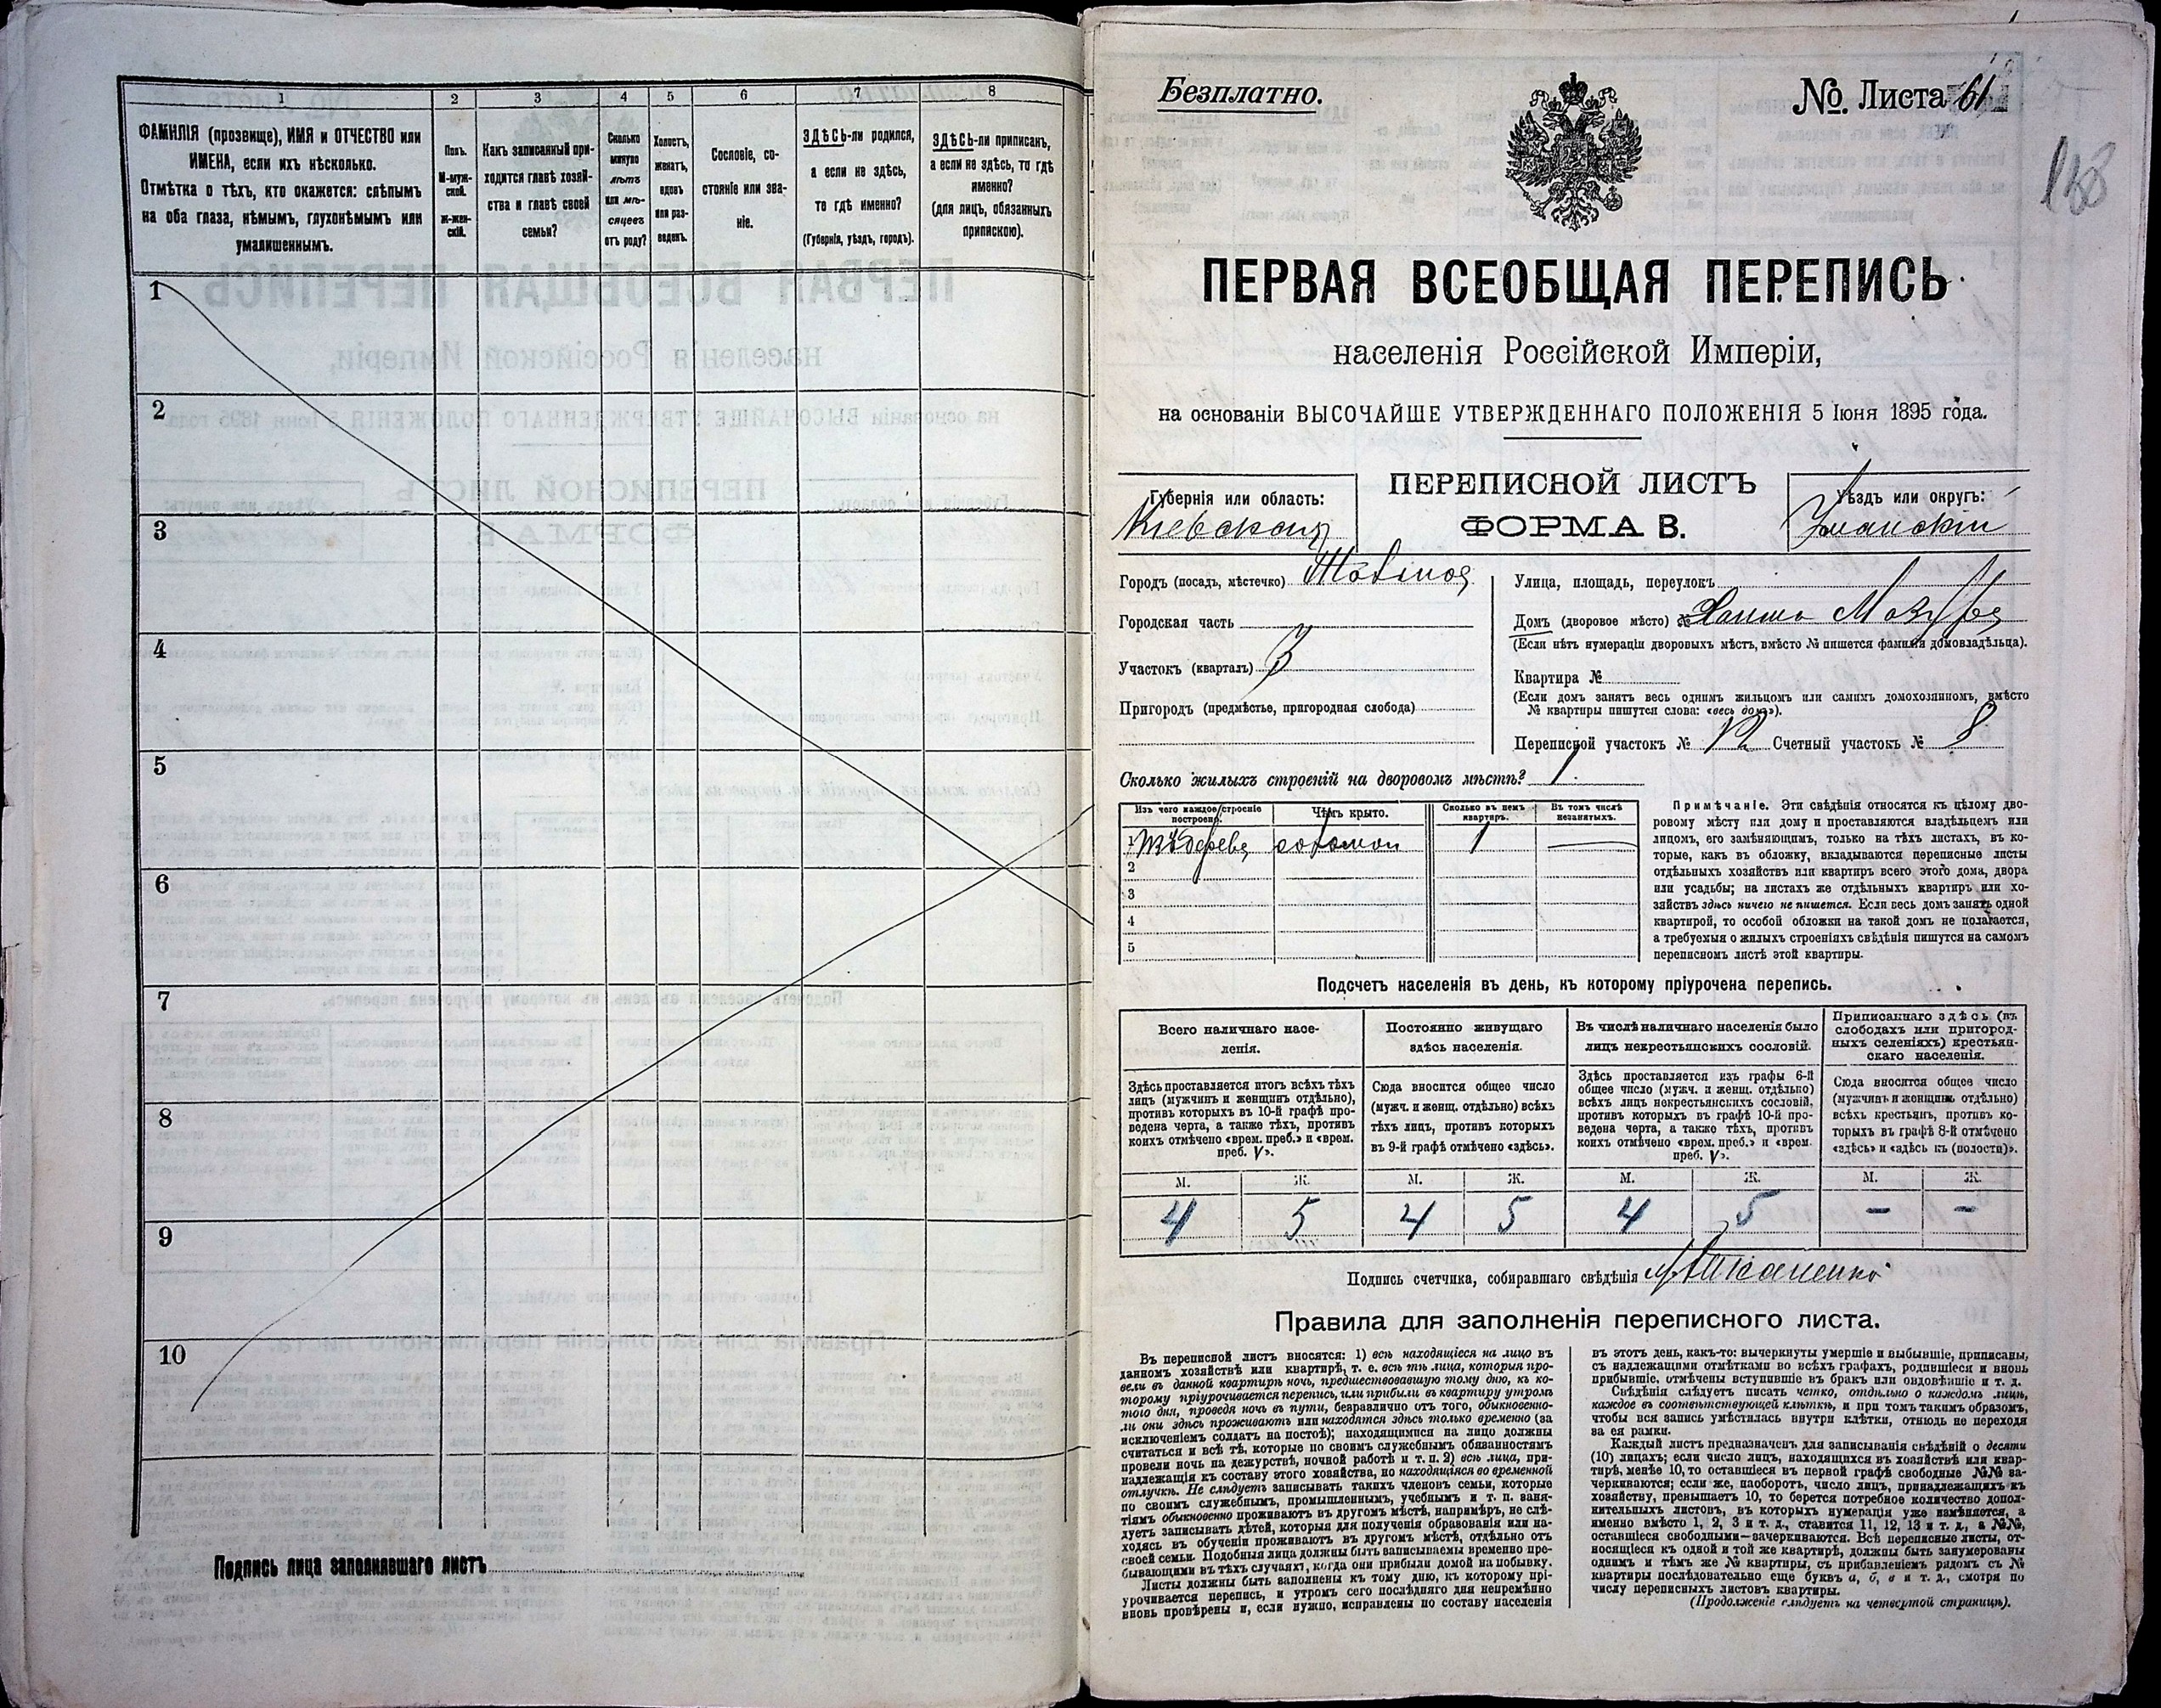 1 2 3 4 5 6 7 8
ФАМИЛІЯ (прозвище), ИМЯ и ОТЧЕСТВО или
ИМЕНА, если ихъ нѣсколько.
Отмѣтка о тѣхъ, кто окажется: слѣпымъ
на оба глаза, нѣмымъ, глухонѣмымъ или
умалишеннымъ.
Полъ.
М-муж-
ской.
Ж-жен-
скій.
Какъ записанный при-
ходится главѣ хозяй-
ства и главѣ своей
семьи?
Сколько
минуло
лѣтъ
или мѣ-
сяцевъ
отъ роду?
Холостъ,
женатъ,
вдовъ
или раз-
веденъ.
Сословіе, со-
стояніе или зва-
ніе.
ЗДѢСЬ-ли родился,
а если не здѣсь,
то гдѣ именно?
(Губернія, уѣздъ, городъ).
ЗДѢСЬ-ли приписанъ,
а если не здѣсь, то гдѣ
именно?
(для лицъ, обязанныхъ
припискою).
1
2
3
4
5
6
7
8
9
10
Подпись лица заполнявшаго листъ
Безплатно.
№ Листа 61
ПЕРВАЯ ВСЕОБЩАЯ ПЕРЕПИСЬ
населенія Россійской Имперіи,
на основаніи ВЫСОЧАЙШЕ УТВЕРЖДЕННАГО ПОЛОЖЕНІЯ 5 Іюня 1895 года.
Губернія или область:
Кіевская
ПЕРЕПИСНОЙ ЛИСТЪ
ФОРМА В.
Уѣздъ или округъ:
Уманскій
Городъ (посадъ, мѣстечко)
Городская часть
Участокъ (кварталъ) 3
Пригородъ (предмѣстье, пригородная слобода)
Улица, площадь, переулокъ
Домъ (дворовое мѣсто) №
(Если нѣтъ нумераціи дворовыхъ мѣстъ, вмѣсто № пишется фамилія домовладѣльца).
Квартира №
(Если домъ занятъ весь однимъ жильцомъ или самимъ домохозяиномъ, вмѣсто
№ квартиры пишутся слова: «весь домъ»).
Переписной участокъ № 12 Счетный участокъ № 8
Сколько жилыхъ строеній на дворовомъ мѣстѣ? 1.
Изъ чего каждое строеніе
построено.
Чѣмъ крыто.
Сколько въ немъ
квартиръ.
Въ томъ числѣ
незанятыхъ.
1 изъ дерева соломой 1 —
2
3
4
5
Примѣчаніе. Эти свѣдѣнія относятся къ цѣлому дво-
ровому мѣсту или дому и проставляются владѣльцемъ или
лицомъ, его замѣняющимъ, только на тѣхъ листахъ, въ ко-
торые, какъ въ обложку, вкладываются переписные листы
отдѣльныхъ хозяйствъ или квартиръ всего этого дома, двора
или усадьбы; на листахъ же отдѣльныхъ квартиръ или хо-
зяйствъ здѣсь ничего не пишется. Если весь домъ занятъ одной
квартирой, то особой обложки на такой домъ не полагается,
а требуемыя о жилыхъ строеніяхъ свѣдѣнія пишутся на самомъ
переписномъ листѣ этой квартиры.
Подсчетъ населенія въ день, къ которому пріурочена перепись.
Всего наличнаго насе-
ленія.
Постоянно живущаго
здѣсь населенія.
Въ числѣ наличнаго населенія было
лицъ некрестьянскихъ сословій.
Приписаннаго здѣсь (въ
слободахъ или пригород-
ныхъ селеніяхъ) крестьян-
скаго населенія.
Здѣсь проставляется итогъ всѣхъ тѣхъ
лицъ (мужчинъ и женщинъ отдѣльно),
противъ которыхъ въ 10-й графѣ про-
ведена черта, а также тѣхъ, противъ
коихъ отмѣчено «врем. преб.» и «врем.
преб. V».
Сюда вносится общее число
(мужч. и женщ. отдѣльно) всѣхъ
тѣхъ лицъ, противъ которыхъ
въ 9-й графѣ отмѣчено «здѣсь».
Здѣсь проставляется изъ графы 6-й
общее число (мужч. и женщ. отдѣльно)
всѣхъ лицъ некрестьянскихъ сословій,
противъ которыхъ въ графѣ 10-й про-
ведена черта, а также тѣхъ, противъ
коихъ отмѣчено «врем. преб.» и «врем.
преб. V».
Сюда вносится общее число
(мужчинъ и женщинъ отдѣльно)
всѣхъ крестьянъ, противъ ко-
торыхъ въ графѣ 8-й отмѣчено
«здѣсь» и «здѣсь къ (волости)».
М. Ж. М. Ж. М. Ж. М. Ж.
4 5 4 5 4 5 — —
Подпись счетчика, собиравшаго свѣдѣнія
Правила для заполненія переписного листа.
Въ переписной листъ вносятся: 1) всѣ находящіеся на лицо въ
данномъ хозяйствѣ или квартирѣ, т. е. всѣ тѣ лица, которыя про-
вели въ данной квартирѣ ночь, предшествовавшую тому дню, къ ко-
торому пріурочивается перепись, или прибыли въ квартиру утромъ
того дня, проведя ночь въ пути, безразлично отъ того, обыкновенно-
ли они здѣсь проживаютъ или находятся здѣсь только временно (за
исключеніемъ солдатъ на постоѣ); находящимися на лицо должны
считаться и всѣ тѣ, которые по своимъ служебнымъ обязанностямъ
провели ночь на дежурствѣ, ночной работѣ и т. п. 2) всѣ лица, при-
надлежащія къ составу этого хозяйства, но находящіяся во временной
отлучкѣ. Не слѣдуетъ записывать такихъ членовъ семьи, которые
по своимъ служебнымъ, промышленнымъ, учебнымъ и т. п. заня-
тіямъ обыкновенно проживаютъ въ другомъ мѣстѣ, напримѣръ, не слѣ-
дуетъ записывать дѣтей, которыя для полученія образованія или на-
ходясь въ обученіи проживаютъ въ другомъ мѣстѣ, отдѣльно отъ
своей семьи. Подобныя лица должны быть записываемы временно пре-
бывающими въ тѣхъ случаяхъ, когда они прибыли домой на побывку.
Листы должны быть заполнены къ тому дню, къ которому прі-
урочивается перепись, и утромъ сего послѣдняго дня непремѣнно
вновь провѣрены и, если нужно, исправлены по составу населенія
въ этотъ день, какъ-то: вычеркнуты умершіе и выбывшіе, приписаны,
съ надлежащими отмѣтками во всѣхъ графахъ, родившіеся и вновь
прибывшіе, отмѣчены вступившіе въ бракъ или овдовѣвшіе и т. д.
Свѣдѣнія слѣдуетъ писать четко, отдѣльно о каждомъ лицѣ,
каждое въ соотвѣтствующей клѣткѣ, и при томъ такимъ образомъ,
чтобы вся запись умѣстилась внутри клѣтки, отнюдь не переходя
за ея рамки.
Каждый листъ предназначенъ для записыванія свѣдѣній о десяти
(10) лицахъ; если число лицъ, находящихся въ хозяйствѣ или квар-
тирѣ, менѣе 10, то оставшіеся въ первой графѣ свободные №№ за-
черкиваются; если же, наоборотъ, число лицъ, принадлежащихъ къ
хозяйству, превышаетъ 10, то берется потребное количество допол-
нительныхъ листовъ, въ которыхъ нумерація уже измѣняется, а
именно вмѣсто 1, 2, 3 и т. д., ставится 11, 12, 13 и т. д., а №№,
оставшіеся свободными—зачеркиваются. Всѣ переписные листы, от-
носящіеся къ одной и той же квартирѣ, должны быть занумерованы
однимъ и тѣмъ же № квартиры, съ прибавленіемъ рядомъ съ №
квартиры послѣдовательно еще буквъ а, б, в и т. д., смотря по
числу переписныхъ листовъ квартиры.
(Продолженіе слѣдуетъ на четвертой страницѣ).